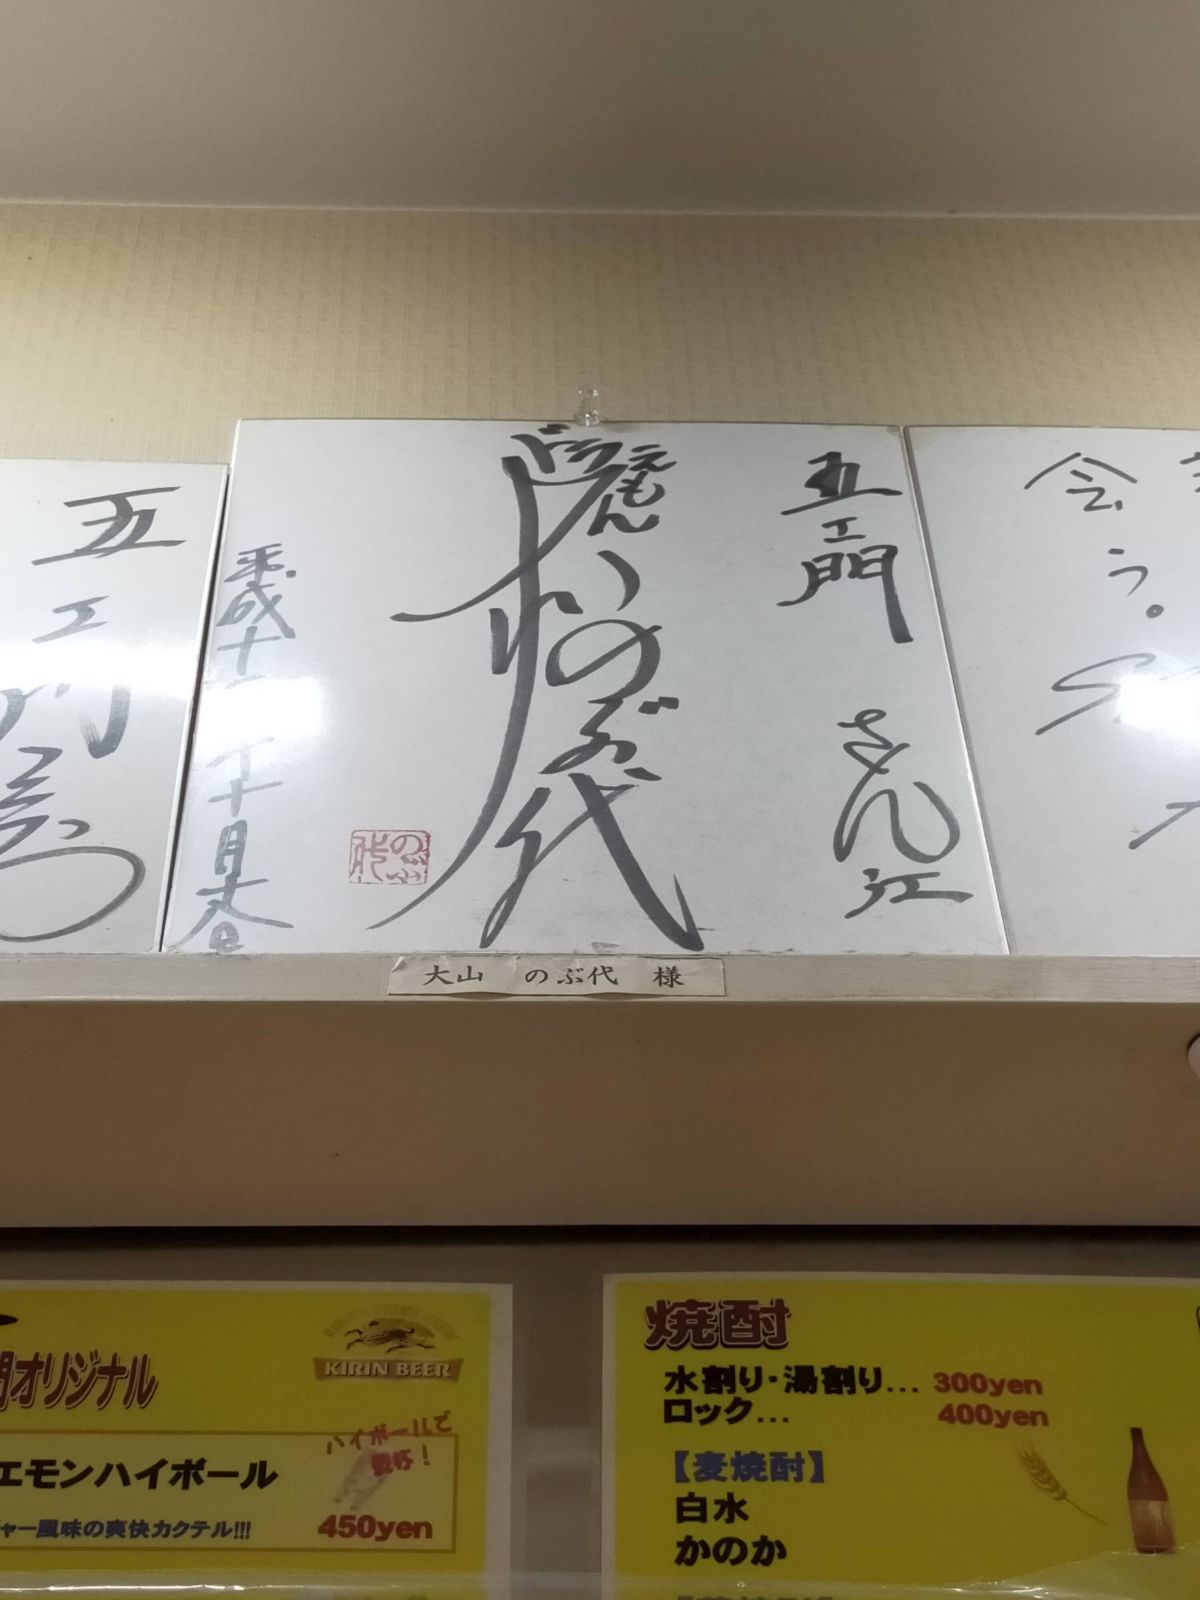 会う。
五エ門
さん江
ドラえもん
大山のぶ代
平成十
十月
のぶ代
五エ門
大山　のぶ代　様
オリジナル
KIRIN BEER
ハイボールで
乾杯！
エモンハイボール
ャー風味の爽快カクテル!!!
450yen
焼酎
水割り・湯割り… 300yen
ロック… 400yen
【麦焼酎】
白水
かのか